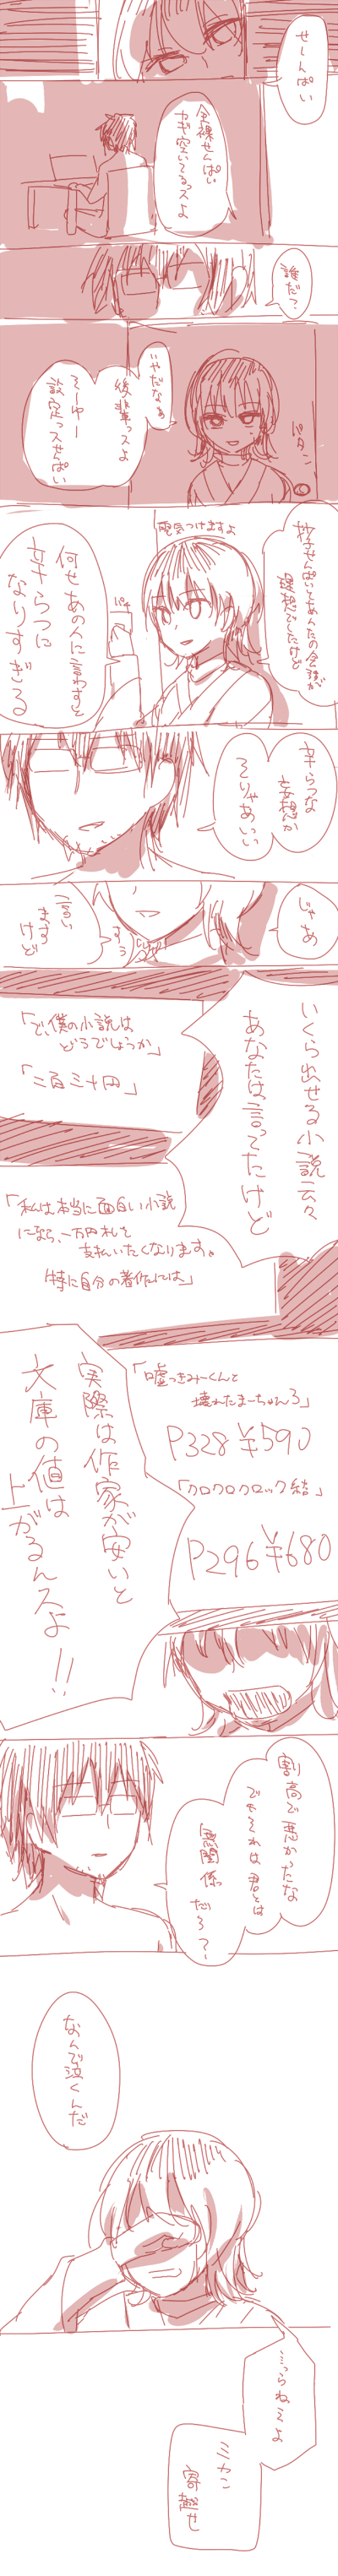 せーんぱい
全裸せんぱい
カギ空いてるっスよ
誰だ?
いやだなあ
後輩っスよ
そーゆー
設定っスせんぱい
パタン
電気つけますよ
パチ
せんぱいとあんたの会話が
理想でしたけど
何せあの人に言わすと
辛らつに
なりすぎる
辛らつな
妄想か
そりゃあいい
じゃあ
言い
ます
けど
いくら出せる小説云々
あなたは言ってたけど
「で、僕の小説は
どうでしょうか」
「二百三十円」
「私は本当に面白い小説
になら、一万円札で
支払いたくなります。
特に自分の著作には」
「嘘つきみーくんと
壊れたまーちゃん3」
P328 ¥590
「クロクロクロック結」
P296 ¥680
実際は作家が安いと
文庫の値は
上がるんスよ!!
割高で悪かったな
でもそれは君とは
無関係
だろ?
なんで泣くんだ
…っらねえよ
ミカン
寄越せ